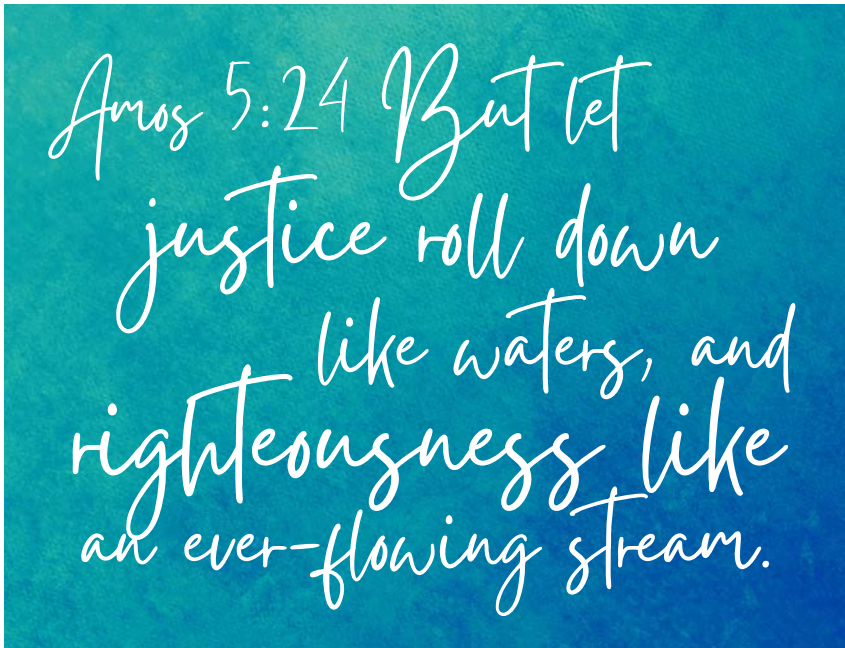 Amos 5:24 But let
justice roll down
like waters, and
righteousness like
an ever-flowing stream.